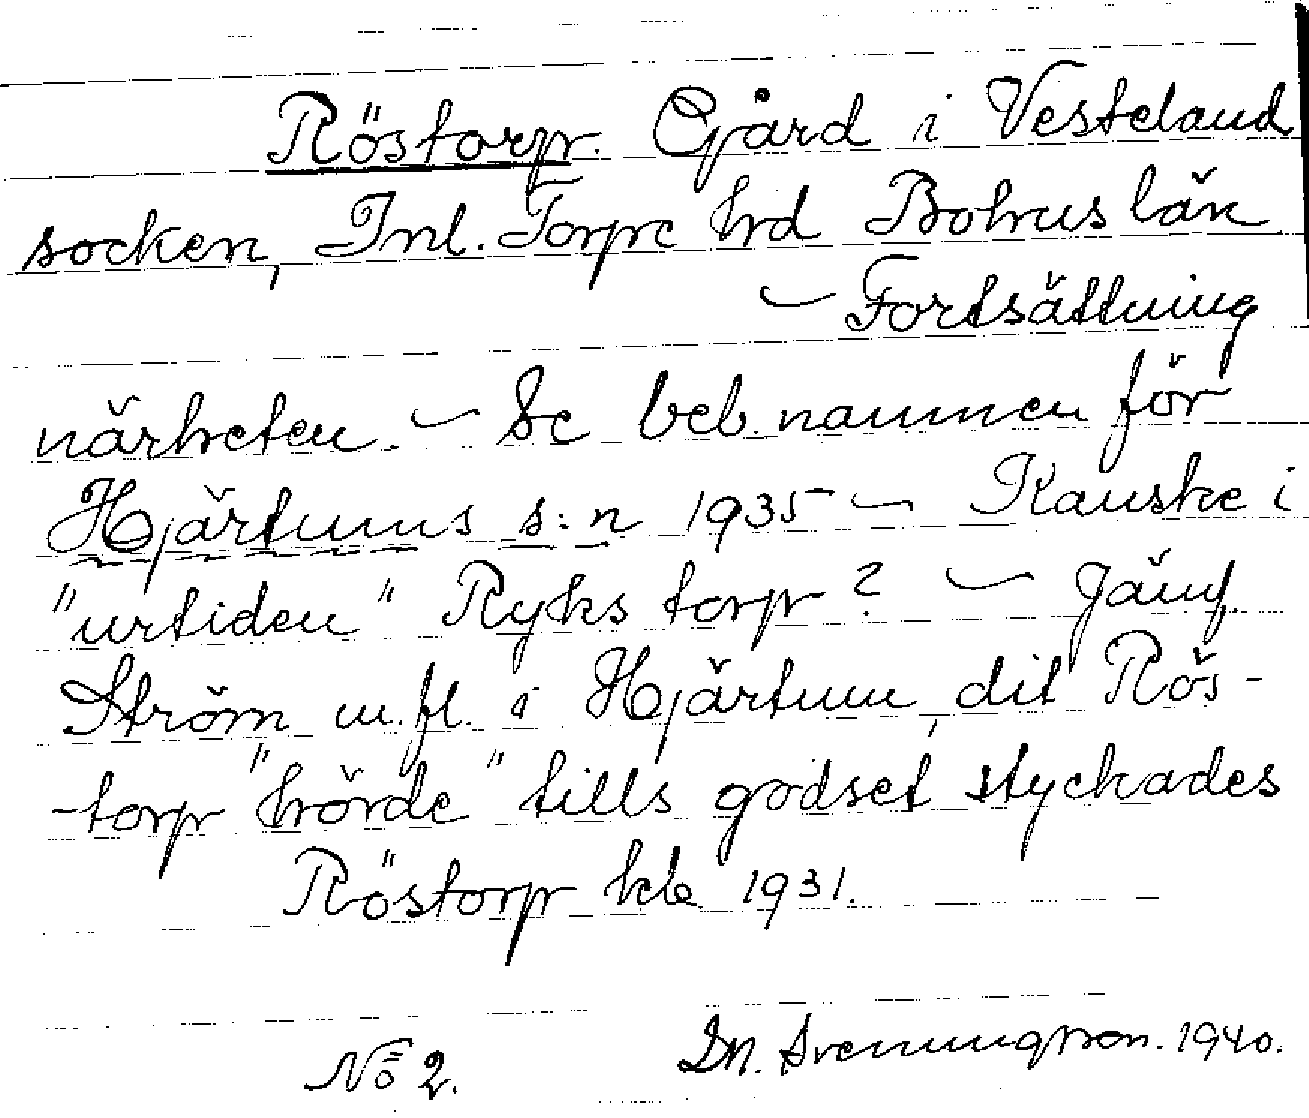 Röstorp. Gård i Vesteland
socken, Inl. Torpe hrd Bohus län
— Fortsättning
närheten. — Se beb. namnen för
Hjärtums s:n 1935 — Kanske i
"urtiden" Ryks torp? — Jämf.
Ström m.fl. i Hjärtum, dit Rös-
-torp "hörde" tills godset styckades
Röstorp kb 1931.
No 2. Svenningsson. 1940.